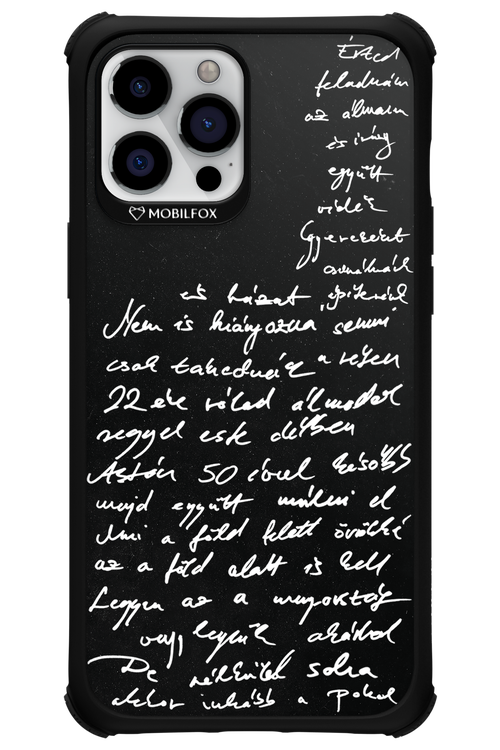 MOBILFOX
Érted
feladnám
az álmaim
és így
együtt
veled
Gyerekeket
csinálnánk
és házat építenénk
Nem is hiányozna semmi
csak takarodnánk a réten
22 éve rólad álmodok
reggel este délben
Aztán 50 évvel később
majd együtt múlni el
Ami a föld felett örökké
az a föld alatt is kell
Legyen az a mennyország
vagy legyünk akárhol
De nélküled soha
akkor inkább a pokol